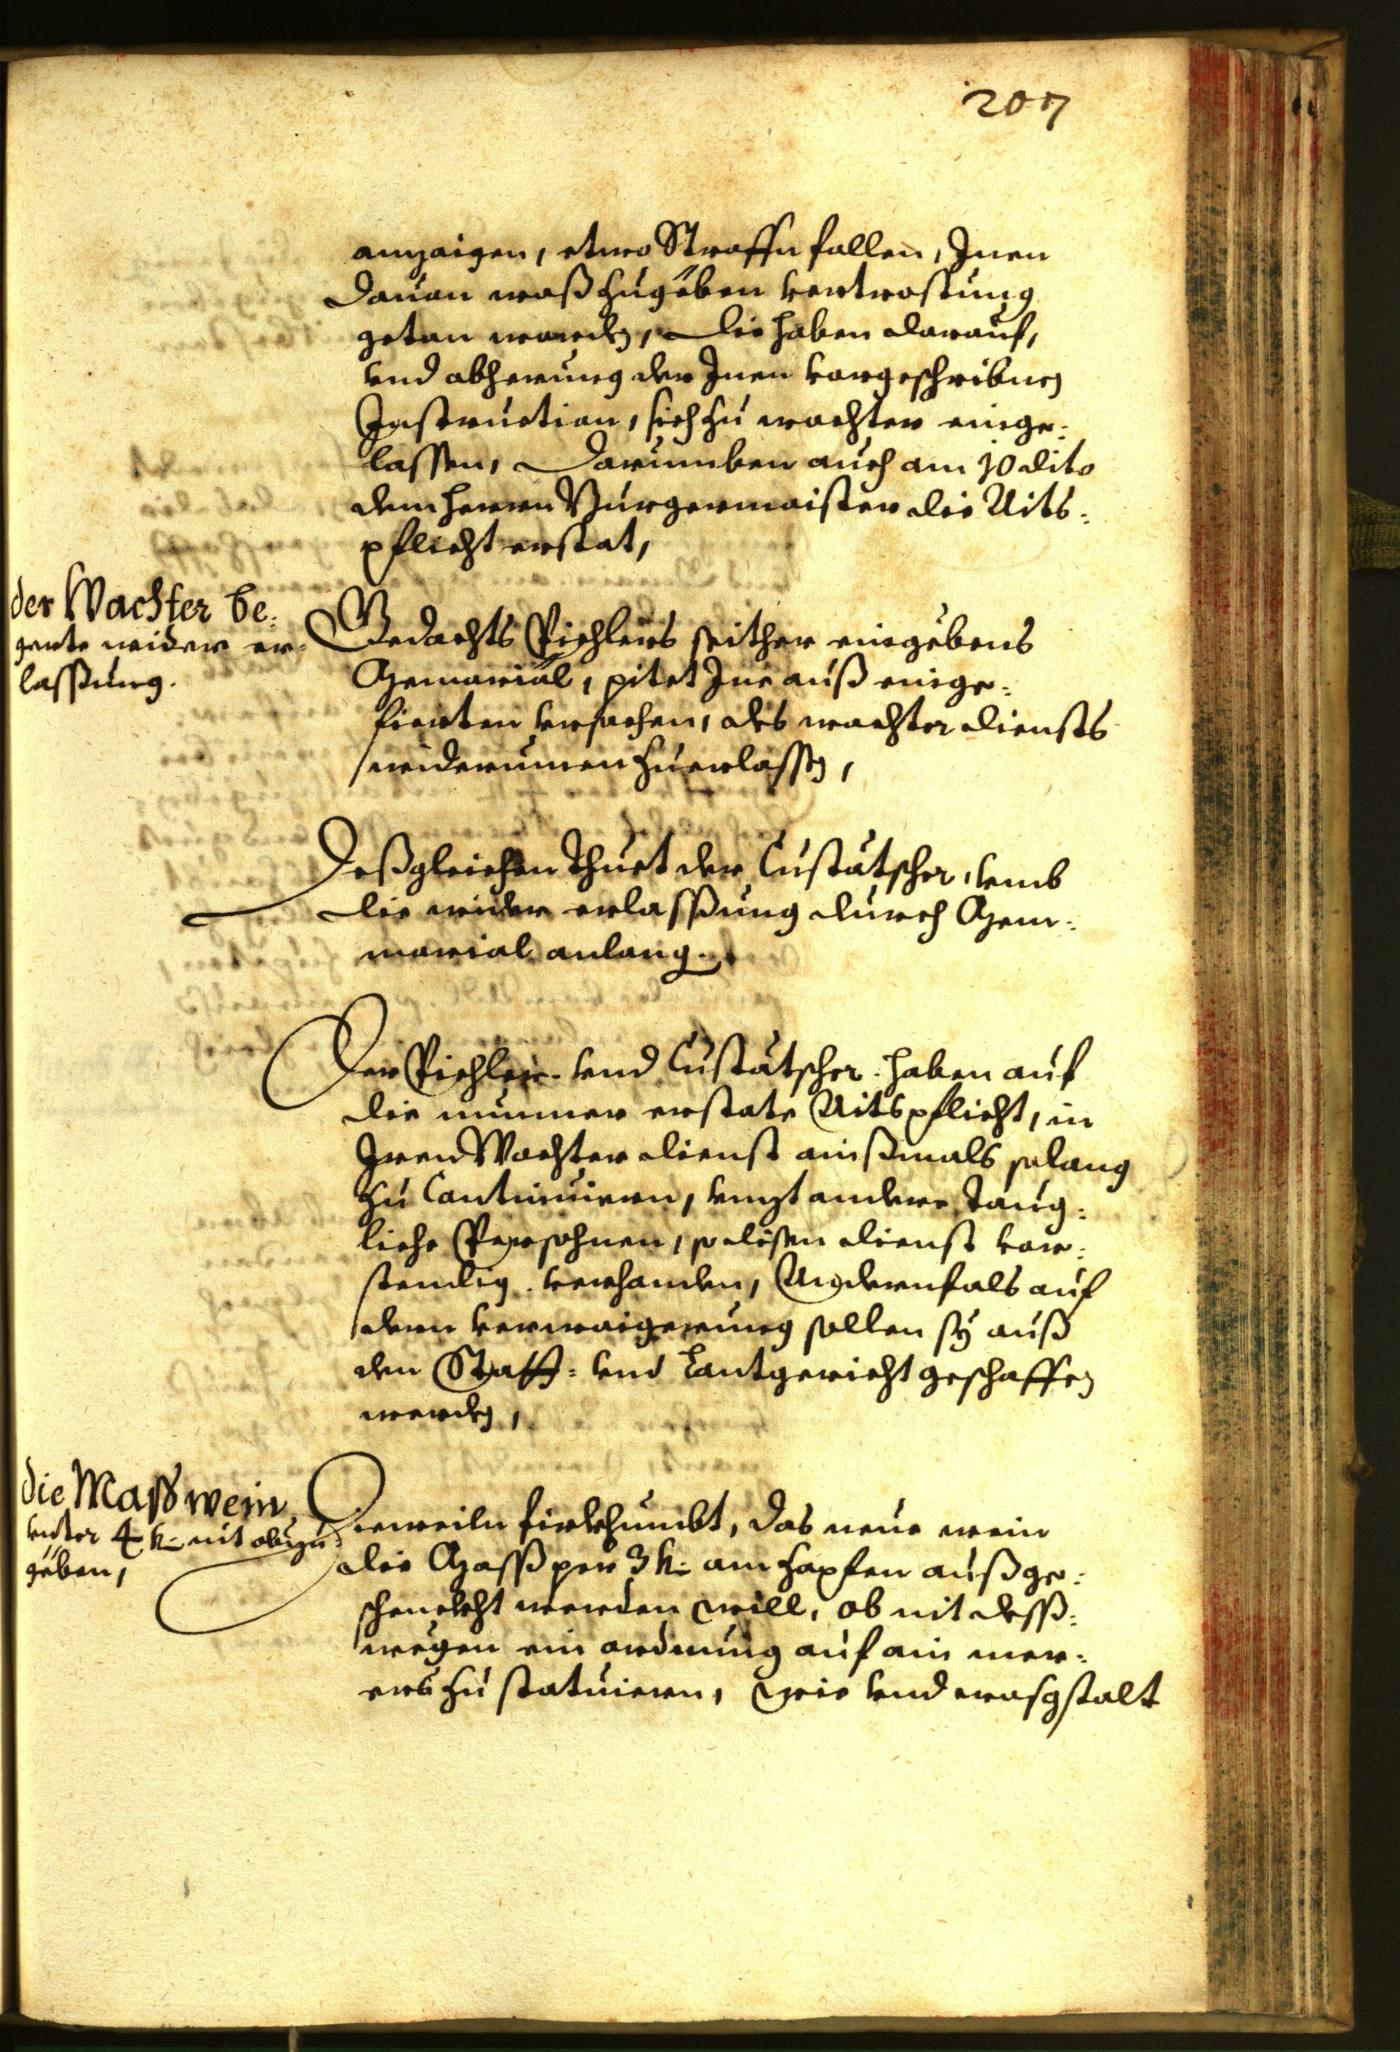 207
anzaigen, etwo Straffn fallen, Inen
dauon waß zugeben vertrostung
getan worden, die haben darauf,
vnd abherung der Inen vorgeschribnen
Instruction, sich zu wachter einge-
lassen, Darumben auch am 10 dito
dem herrn Burgermaister die Aits-
pflicht erstat,
der Wachter be-
gerte wider er-
lassung.
Gedachts Pichlers seither eingebens
Memorial, pitet Ine auß einge-
fierten vrsachen, des wachter diensts
widerumen zuerlassen,
Deßgleichen thuet der Custätscher, vmb
die wider erlassung durch Mem-
morial anlang.
Der Pichler. vnd Custätscher. haben auf
die nunmer erstate Aitspflicht, in
Iren Wachter dienst ainßmals solang
zu Continuiern, vnzt andere taug-
liche Persohnen, so disen dienst vor-
stendig. verhanden, Andernfals auf
dern verwaigerung sollen sy auß
den Statt- vnd Lantgericht geschaffen
werden,
die Mass wein
vnter 4 k. nit abzu-
geben,
Dieweiln firkhumbt, das neue wein
die Mass per 3 k. am zapfen außge-
schenckht werden will, ob nit dess-
wegen ein ordnung auf ain mer-
ers zu statuiern, wie vnd wasgstalt